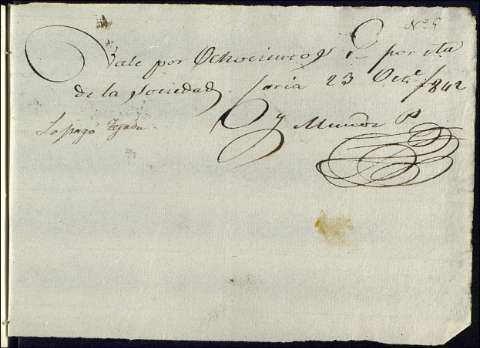 Nº 5
Vale por Ochocientos r. por cta
de la Sociedad. Soria 23 Oct.e 1842
y Muñoz P
Lo pagó Tejada